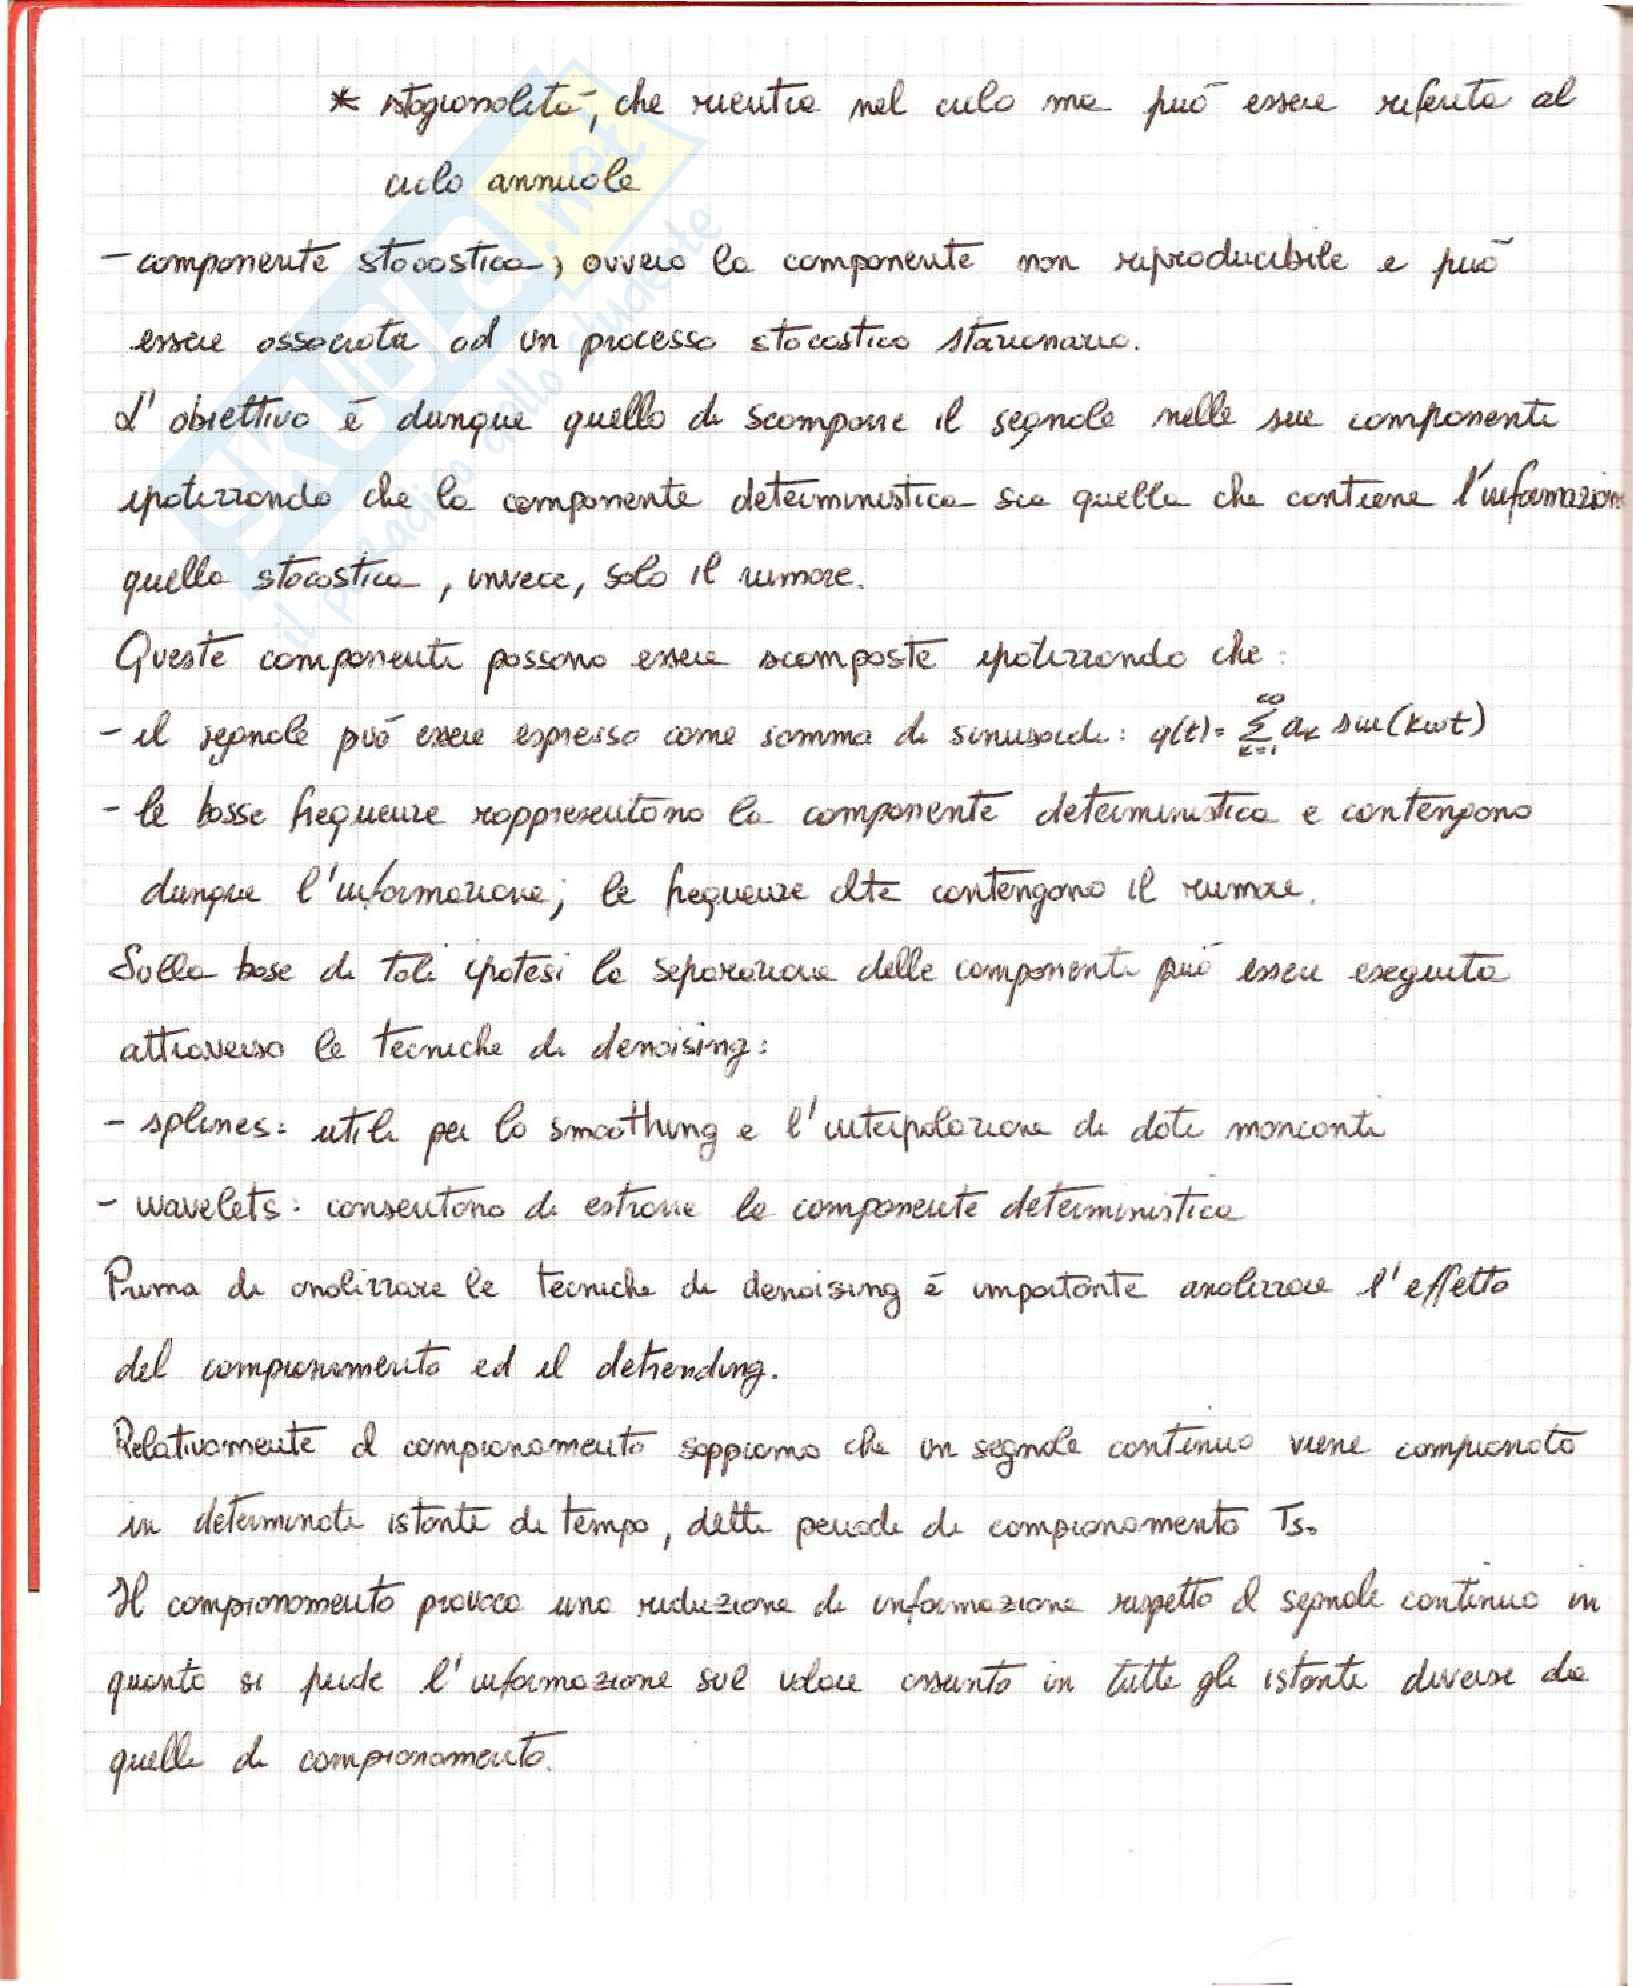 * stagionalità, che rientra nel ciclo ma può essere riferita al
ciclo annuale
- componente stocastica, ovvero la componente non riproducibile e può
essere associata ad un processo stocastico stazionario.
L'obiettivo è dunque quello di scomporre il segnale nelle sue componenti
ipotizzando che la componente deterministica sia quella che contiene l'informazione
quella stocastica, invece, solo il rumore.
Queste componenti possono essere scomposte ipotizzando che:
- il segnale può essere espresso come somma di sinusoidi: y(t) = ∑_{k=1}^{∞} a_k sin(kωt)
- le basse frequenze rappresentano la componente deterministica e contengono
dunque l'informazione; le frequenze alte contengono il rumore.
Sulla base di tali ipotesi la separazione delle componenti può essere eseguita
attraverso le tecniche di denoising:
- splines: utili per lo smoothing e l'interpolazione di dati mancanti
- wavelets: consentono di estrarre la componente deterministica
Prima di analizzare le tecniche di denoising è importante analizzare l'effetto
del campionamento ed il detrending.
Relativamente al campionamento sappiamo che un segnale continuo viene campionato
in determinati istanti di tempo, detti periodi di campionamento Ts.
Il campionamento provoca una riduzione di informazione rispetto al segnale continuo in
quanto si perde l'informazione sul valore assunto in tutti gli istanti diversi da
quelli di campionamento.
SKUOLA.net
il paradiso dello studente